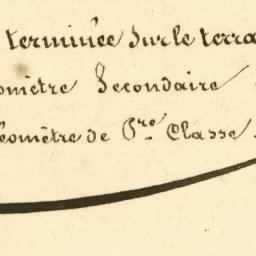 terminée sur le terra
omètre Secondaire
éomètre de 1re Classe.